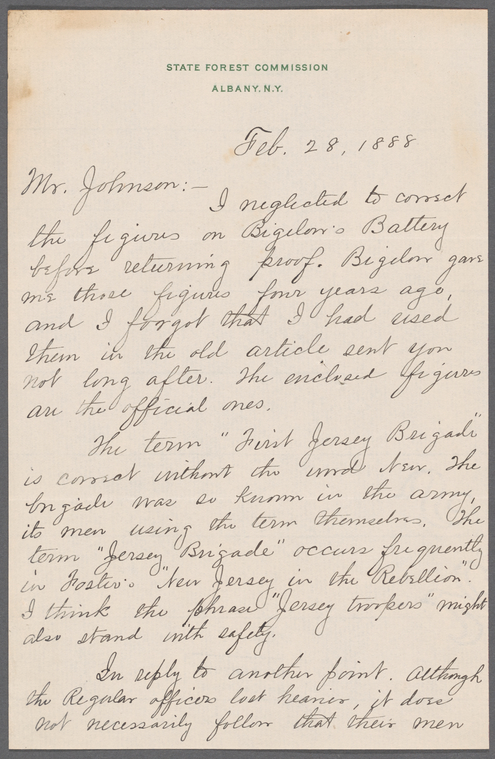 STATE FOREST COMMISSION
ALBANY, N.Y.
Feb. 28, 1888
Mr. Johnson:—
I neglected to correct
the figures on Bigelow's Battery
before returning proof. Bigelow gave
me those figures four years ago,
and I forgot that I had used
them in the old article sent you
not long after. The enclosed figures
are the official ones.
The term "First Jersey Brigade"
is correct without the word New. The
brigade was so known in the army,
its men using the term themselves. The
term "Jersey Brigade" occurs frequently
in Foster's "New Jersey in the Rebellion".
I think the phrase "Jersey troopers" might
also stand with safety.
In reply to another point. Although
the Regular officers lost heavier, it does
not necessarily follow that their men